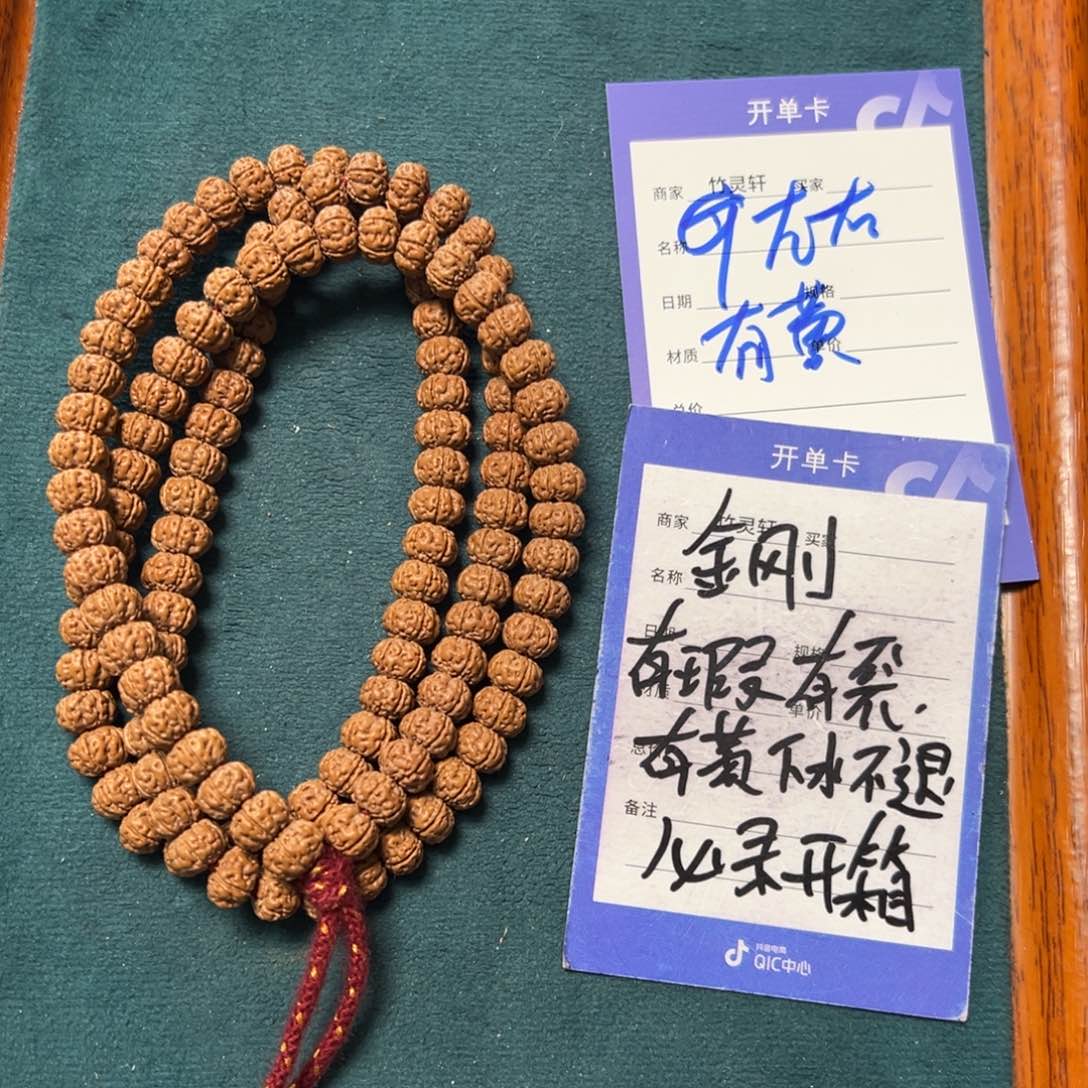 开单卡
商家 竹灵轩 买家
名称
日期 规格
有黄
材质 单价
总价
开单卡
商家 竹灵轩 买家
金刚
名称
日期 规格
有瑕有裂.
材质 单价
总价
有黄下水不退
备注
必录开箱
抖音电商
QIC中心